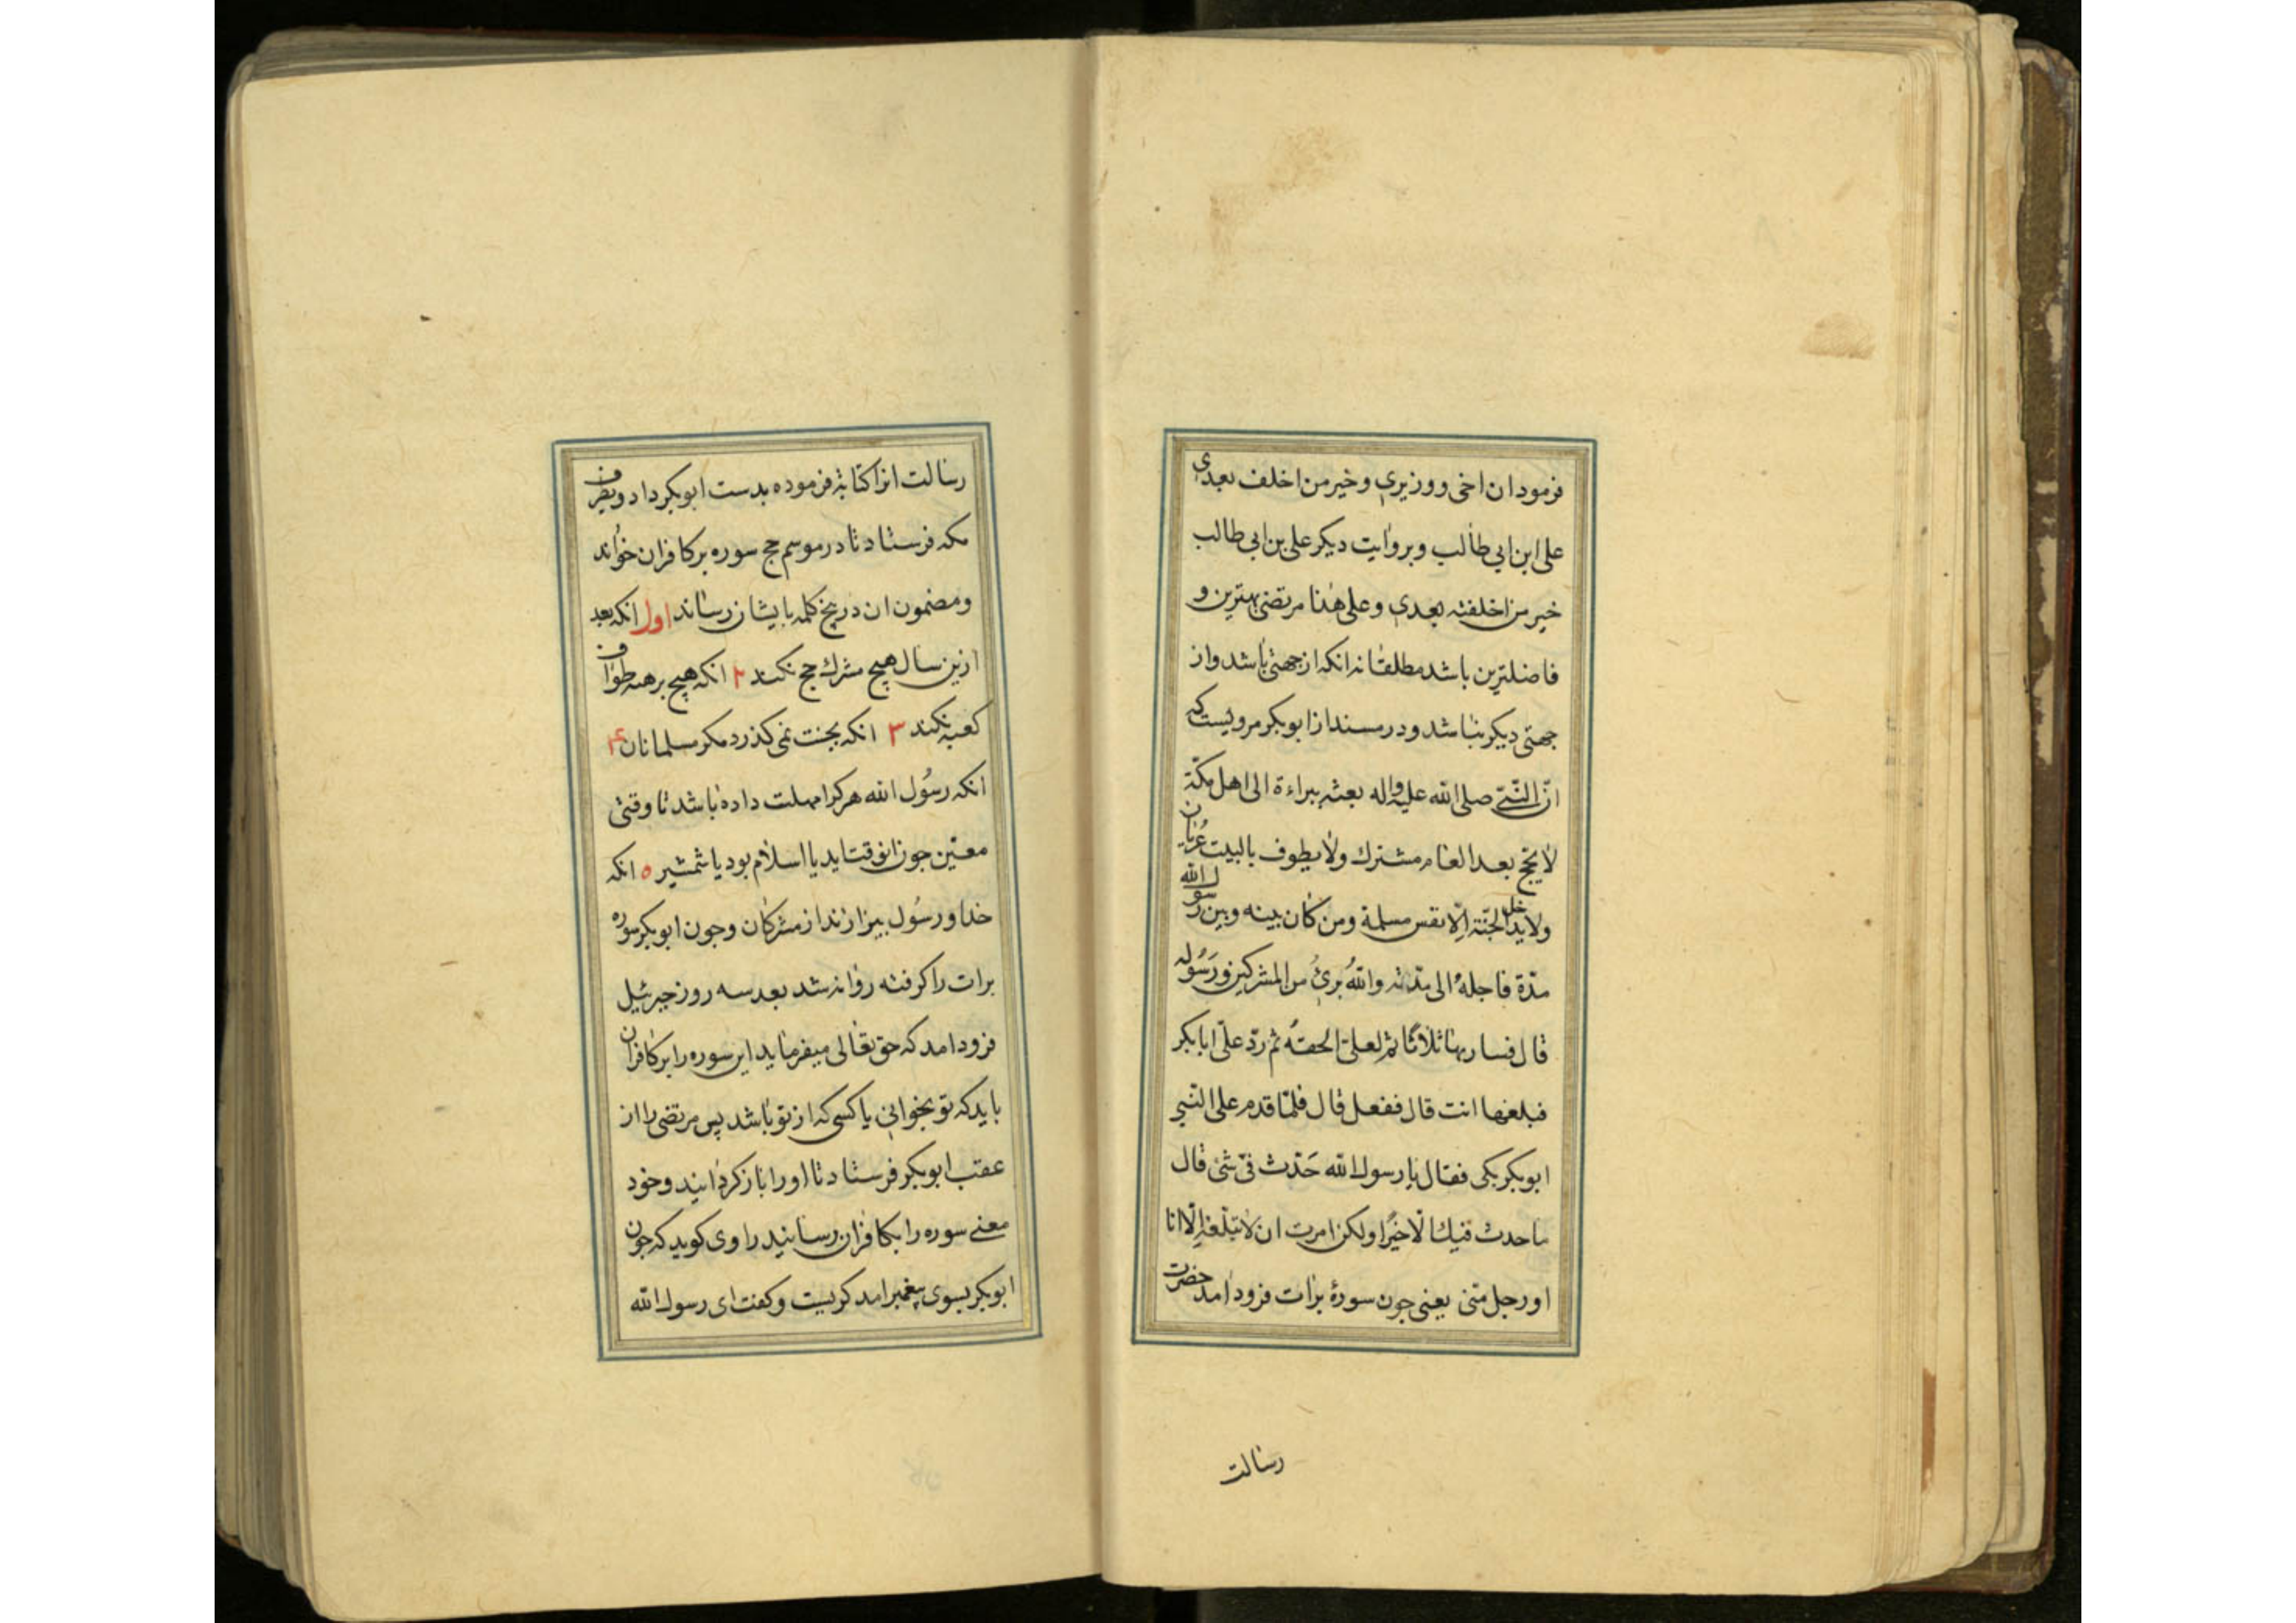 فرمود ان اخی ووزیری وخیر من اخلف بعدی
علی ابن ابی طالب وبروایت دیکر علی بن ابی طالب
خیر من اخلفته بعدی وعلی هذا مرتضی بهترین و
فاضلترین باشد مطلقا نه انکه از جهتی باشد واز
جهتی دیکر نباشد ودر مسند از ابوبکر مرویست که
انّ النّبیّ صلی الله علیه واله بعثه ببراءة الی اهل مکّة
لا یحج بعد العام مشرك ولا یطوف بالبیت عُریان
ولا یدخل الجنّة الّا نفس مسلمة ومن کان بینه وبین رسول الله
مدّة فاجله الی مدّته واللهُ برئٌ من المشرکین ورَسُوله
قال فسار بها ثلاثا ثم لعلیّ الحقه ثم ردّ علیّ ابا بکر
فبلغها انت قال ففعل قال فلمّا قدم علی النّبی
ابوبکر بکی فقال یا رسول الله حَدَث فیّ شئ قال
ما حدث فیك الّا خیرًا ولکن امرت ان لا یبلّغه الّا انا
او رجل منّی یعنی جون سورهٔ برات فرود امد حضرت
رسالت
رسالت انرا کتابة فرموده بدست ابوبکر داد وبطرف
مکه فرستاد تا در موسم حج سوره بر کافران خواند
ومضمون ان در پنج کلمه بایشان رساند اول انکه بعد
ازین سال هیچ مشرك حج نکند ۲ انکه هیچ برهنه طواف
کعبه نکند ۳ انکه بجنت نمی کذرد مکر مسلمانان ۴
انکه رسُول الله هر کرا مهلت داده باشد تا وقتی
معیّن جون انوقت اید یا اسلام بود یا شمشیر ۵ انکه
خدا ورسُول بیزارند از مشرکان وجون ابوبکر سوره
برات را کرفته روانه شد بعد سه روز جبرئیل
فرود امد که حق تعالی میفرماید این سوره را بر کافران
باید که تو بخوانی یا کسی که از تو باشد پس مرتضی را از
عقب ابوبکر فرستاد تا او را باز کردانید وخود
معنی سوره را بکافران رسانید راوی کوید که جون
ابوبکر بسوی پیغمبر امد کریست وکفت ای رسول الله